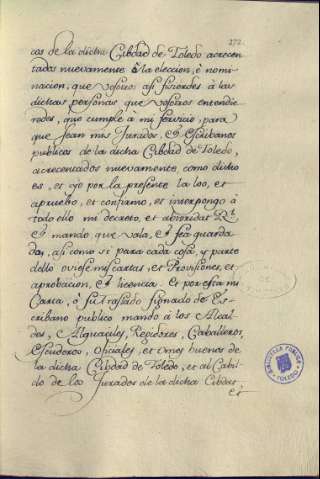 272
cos de la dicha Cibdad de Toledo acrecen
tados nuevamente à la eleccion, è nomi
nacion, que vosotros asi ficierdes à las
dichas personas que vosotros entendie
redes, que cumple à mi servicio, para
que sean mis Jurados, et Escribanos
publicos de la dicha Cibdad de Toledo,
acrecentados nuevamente, como dicho
es, et yo por la presente la loo, et
apruebo, et confirmo, et interpongo à
todo ello mi decreto, et abtoridat Rl
et mando, que vala, et sea guarda
da, asi como si para cada cosa, y parte
dello oviese mis cartas, et Provisiones, et
aprobacion, et licencia. Et por esta mi
Carta, ò su traslado signado de Es
cribano publico mando à los Alcal
des, Alguaciles, Regidores, Caballeros,
Escuderos, oficiales, et omes buenos de
la dicha Cibdad de Toledo, et al Cabil
do de los Jurados de la dicha Cibdat
BIBLIOTECA PUBLICA
TOLEDO